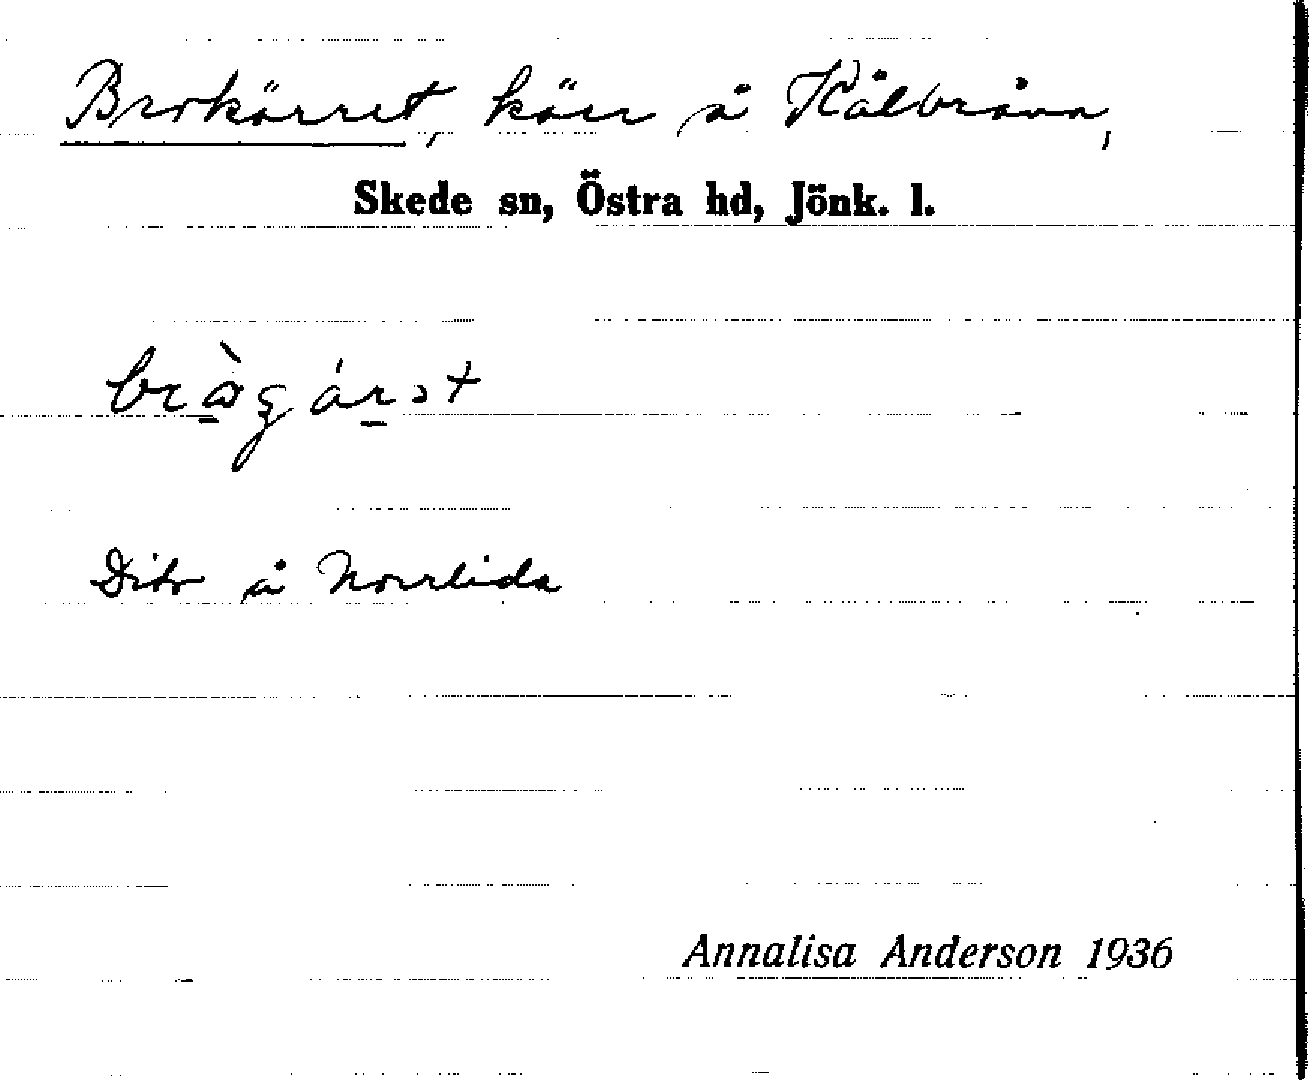 Brokärret, kärr å Kålbråna,
Skede sn, Östra hd, Jönk. l.
Dito å Norrlida
Annalisa Anderson 1936